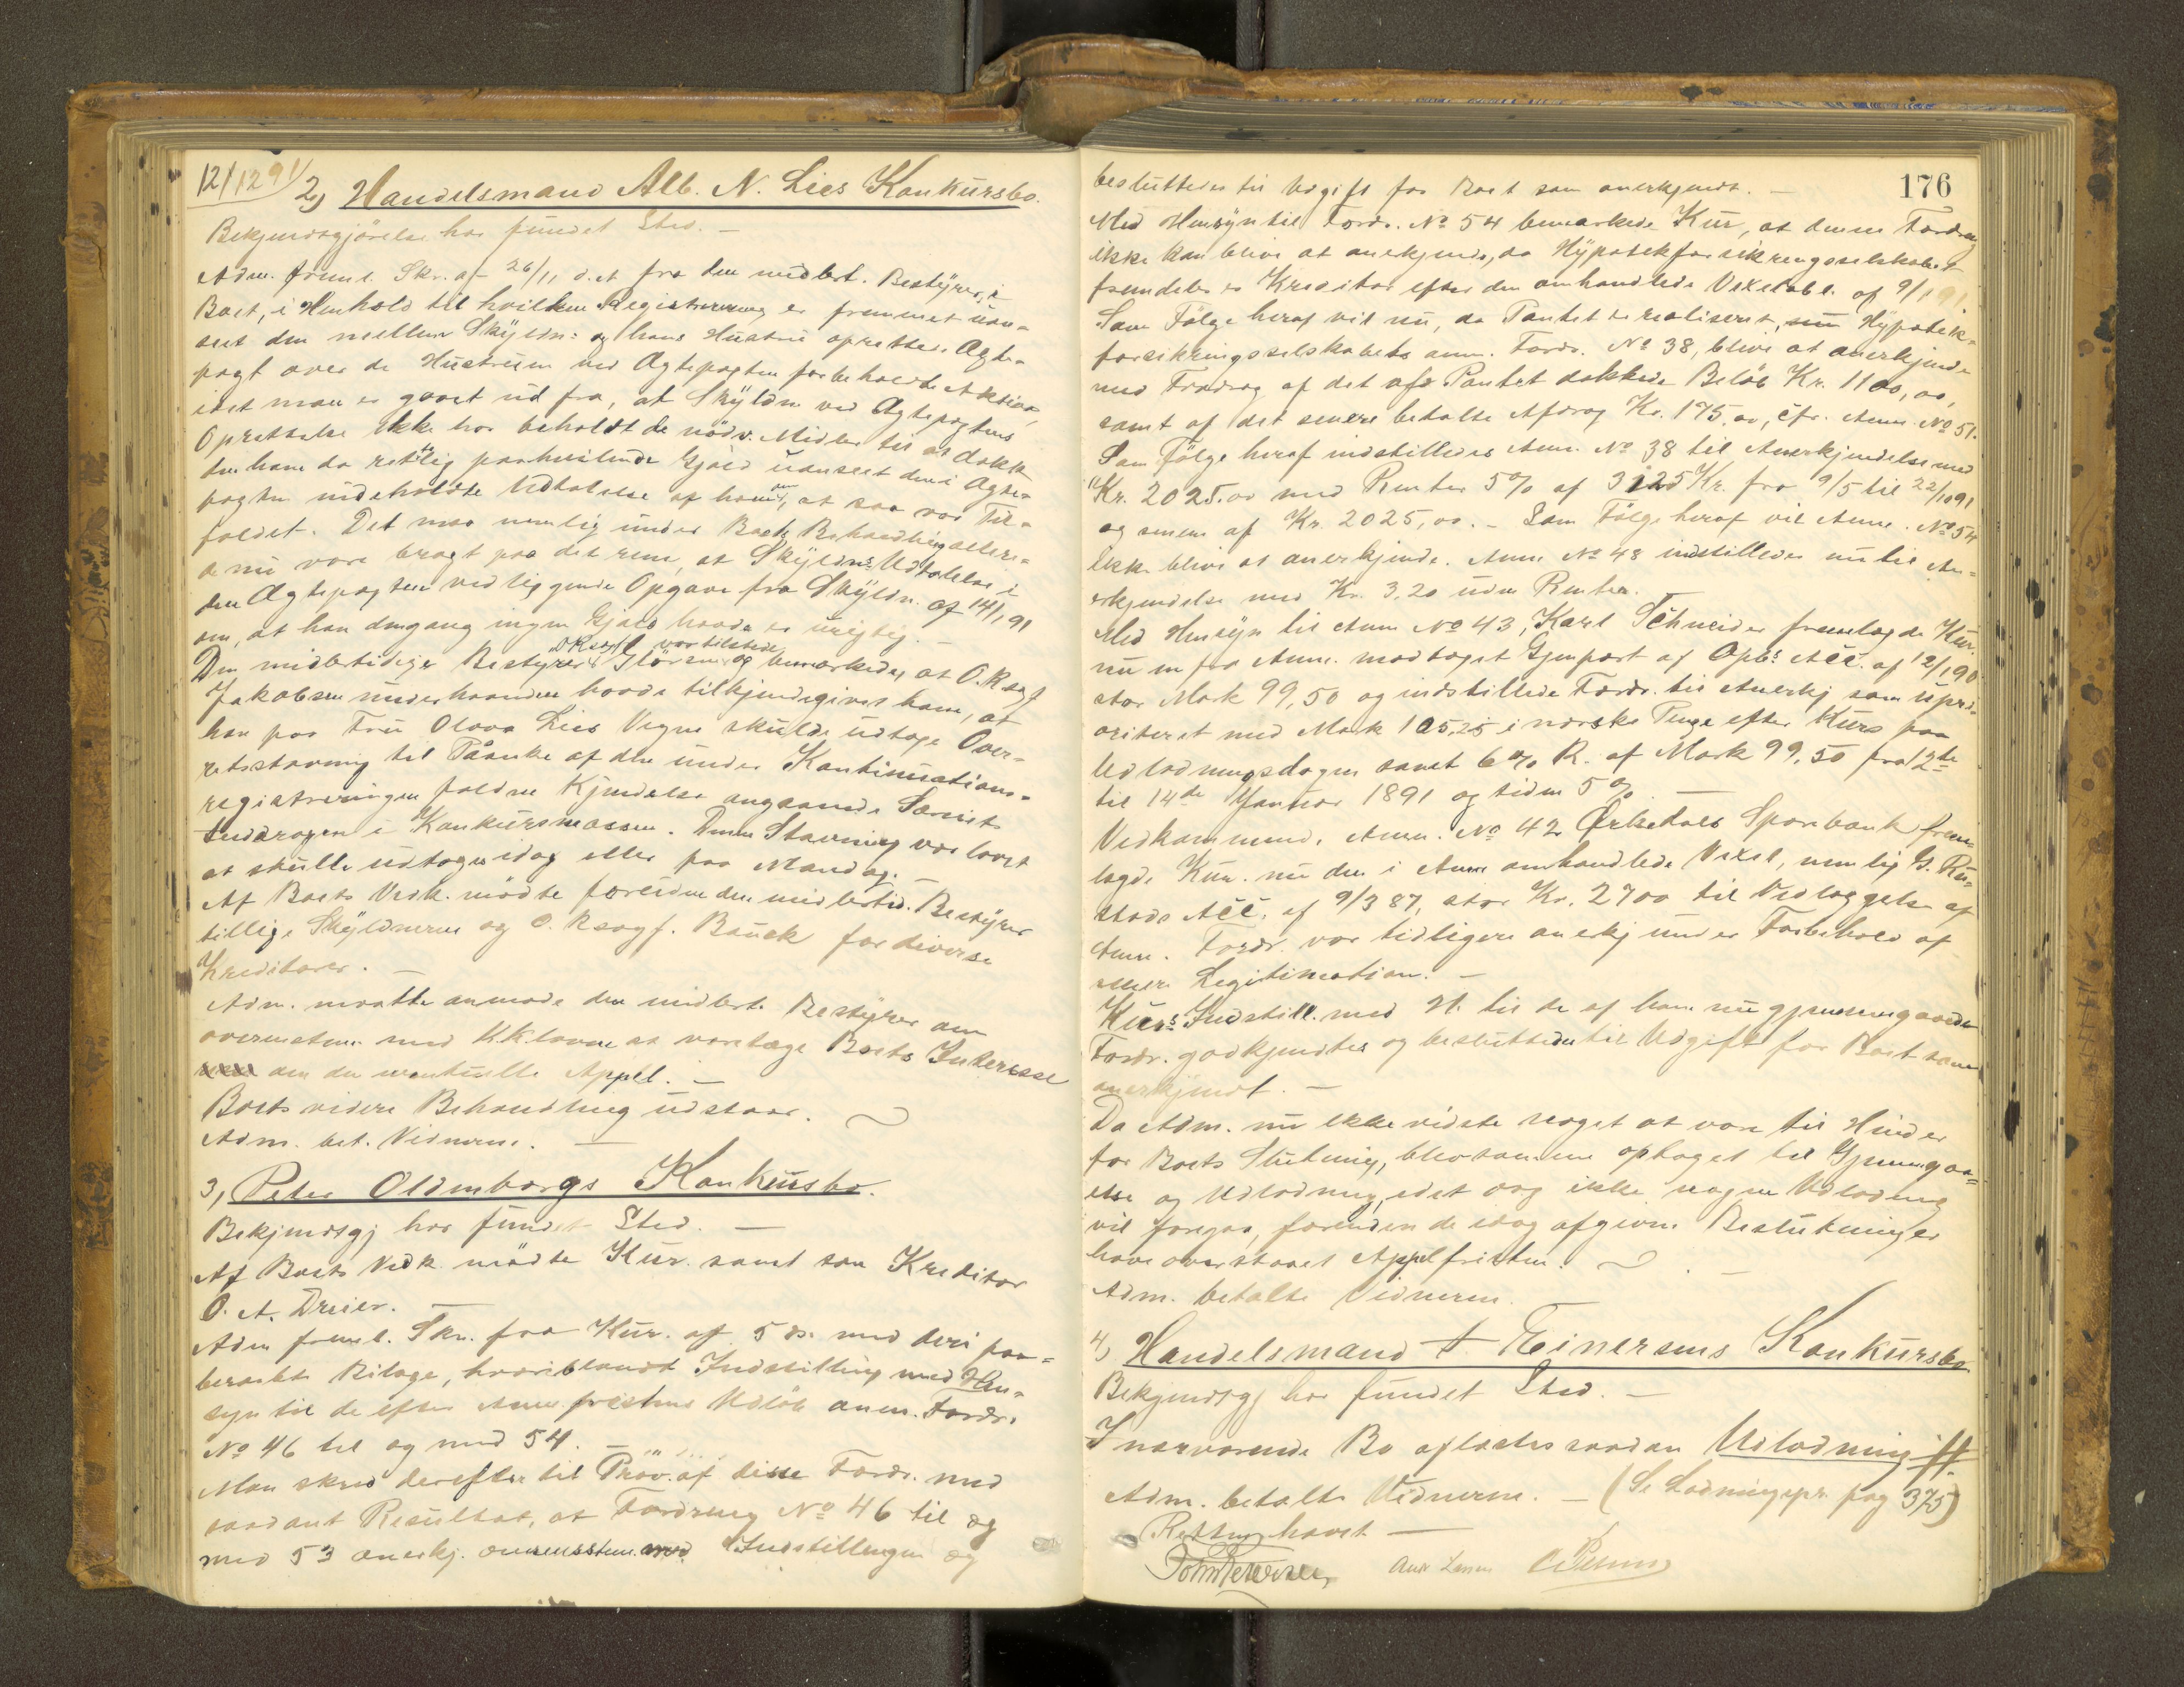 12/12 91
2) Handelsmand Alb. N. Lies Konkursbo.
Bekjendtgjörelse har fundet Sted. —
Adm. freml. Skr. af 26/11 d.A. fra den midlert. Bestyrer i
Boet, i Henhold til hvilken Registrering er fremmet uan-
seet den mellem Skyldn: og hans Hustru oprettede Ægte-
pagt over de Hustruen ved Ægtepagten forbeholdte Aktiver,
idet man er gaaet ud fra, at Skyldn ved Ægtepagtens
Oprettelse ikke har beholdt de nödv. Midler til at dække
den ham da retslig paahvilende Gjæld uanseet den i Ægte-
pagten indeholdte Udtalelse af ham, at saa var Til-
fældet. Det maa nemlig under Boets Behandling allere-
de nu være bragt paa det rene, at Skyldns Udtalelse i
den Ægtepagten vedliggende Opgave fra Skyldn. af 14/1 91
om, at han dengang ingen Gjæld havde er urigtig. —
Den midlertidige Bestyrer O.Rsagf. var tilstede
og bemærkede, at O.Rsagf
Jakobsen underhaanden havde tilkjendegivet ham, at
han paa Fru Olava Lies Vegne skulde udtage Over-
retsstævning til Paaanke af den under Kontinuations-
registreringen faldne Kjendelse angaaende Særeiets
Inddragen i Konkursmassen. Denne Stævning var lovet
at skulle udtages idag eller paa Mandag. —
Af Boets Vedk. mödte foruden den midlertid. Bestyrer
tillige Skyldneren og O.Rsagf. Bauck for diverse
Kreditorer. —
Adm. maatte anmode den midlert. Bestyrer om
overenstem. med K.K.loven at varetage Boets Interesse
om den eventuelle Appel. —
Boets videre Behandling udstaar.
Adm. bet. Vidnerne. —
3, Peter Oldenborgs Konkursbo.
Bekjendtgj har fundet Sted. —
Af Boets Vedk. mödte Kur. samt som Kreditor
O. A. Dreier. —
Adm freml. Skr. fra Kur. af 5 ds. med deri paa-
beraabte Bilage, hvoriblandt Indstilling med Hen-
syn til de efter Anm.fristens Udlöb anm. Fordr.
No 46 til og med 54. —
Man skred derefter til Pröv. af disse Fordr. med
saadant Resultat, at Fordring No 46 til og
med 53 anerkj. overensstem. med Indstillingen og
176
besluttedes til Udgift for Boet som anerkjendt. —
Med Hensyn til Fordr. No 54 bemærkede Kur, at denne Fordring
ikke kan blive at anerkjende, da Hypotekforsikringsselskabet
fremdeles er Kreditor efter den omhandlede Vexelobl. af 9/1 91.
Som Fölge heraf vil nu, da Pantet er realiseret, Hypotek-
forsikringsselskabets anm. Fordr. No 38, blive at anerkjende
med Fradrag af det ved Pantet dækkede Belöb Kr. 1100,00,
samt af det senere betalte Afdrag Kr. 175.00, cfr. Anm. No 51.
Som Fölge heraf indstilledes Anm. No 38 til Anerkjendelse med
Kr. 2025.00 med Renter 5% af 3125 Kr. fra 9/5 til 22/10 91
og senere af Kr. 2025,00. — Som Fölge heraf vil Anm. No 54
ikke blive at anerkjende. Anm No 48 indstilledes nu til An-
erkjendelse med Kr. 3.20 uden Renter.
Med Hensyn til Anm No 43, Karl Schneider fremlagde Kur.
nu en fra Anm. modtaget Gjenpart af Opbs Acc. af 12/1 90
stor Mark 99,50 og indstillede Fordr. til Anerkj som upri-
oriteret med Mark 105,25 i norske Penge efter Kurs paa
Udlodningsdagen samt 6% R. af Mark 99.50 fra 12te
til 14de Januar 1891 og siden 5%. —
Vedkommend. Anm. No 42 Orkedals Sparebank frem-
lagde Kur. nu den i Anm omhandlede Vexel, nemlig G. Ru-
stads Acc. af 9/3 87, stor Kr. 2700 til Vedlæggelse af
Anm. Fordr. var tidligere anerkj under Forbehold af
Legitimation. —
Kurs Indstill. med H. til de af ham nu gjennemgaaede
Fordr. godkjendtes og besluttedes til Udgift for Boet som
anerkjendt. —
Da Adm. nu ikke vidste noget at være til Hinder
for Boets Slutning, blev samme optaget til Gjennemgaa-
else og Udlodning, idet dog ikke nogen Udlodning
vil foregaa, forinden de idag afgivne Beslutninger
have overstaaet Appelfristen. —
Adm. betalte Vidnerne.
4) Handelsmand A. Einersens Konkursbo
Bekjendtgj har fundet Sted. —
I nærværende Bo aflæstes saadan Udlodning ff.
Adm. betalte Vidnerne. — (Se Lodningspr. pag 375)
Retten hævet —